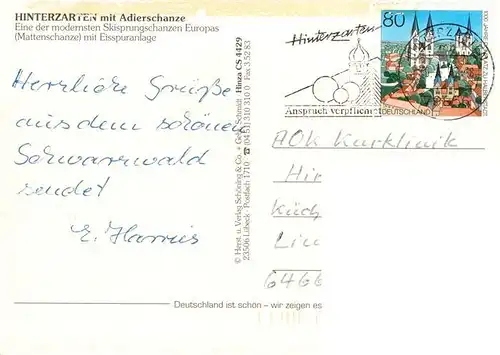 HINTERZARTEN mit Adlerschanze
Eine der modernsten Skisprungschanzen Europas
(Mattenschanze) mit Eisspuranlage
Herzliche Grüße
aus dem schönen
Schwarzwald
sendet
E.
© Herst. u. Verlag Schöning & Co. + Gebr. Schmidt
23506 Lübeck · Postfach 1710 ☎ (0451) 310 310 0 Fax 3 52 83
Hinza CS 4429
Hinterzarten
Anspruch verpflichtet
80
DEUTSCHLAND
AOK Kurklinik
Hin
Küch
Lin
6466
Deutschland ist schön – wir zeigen es